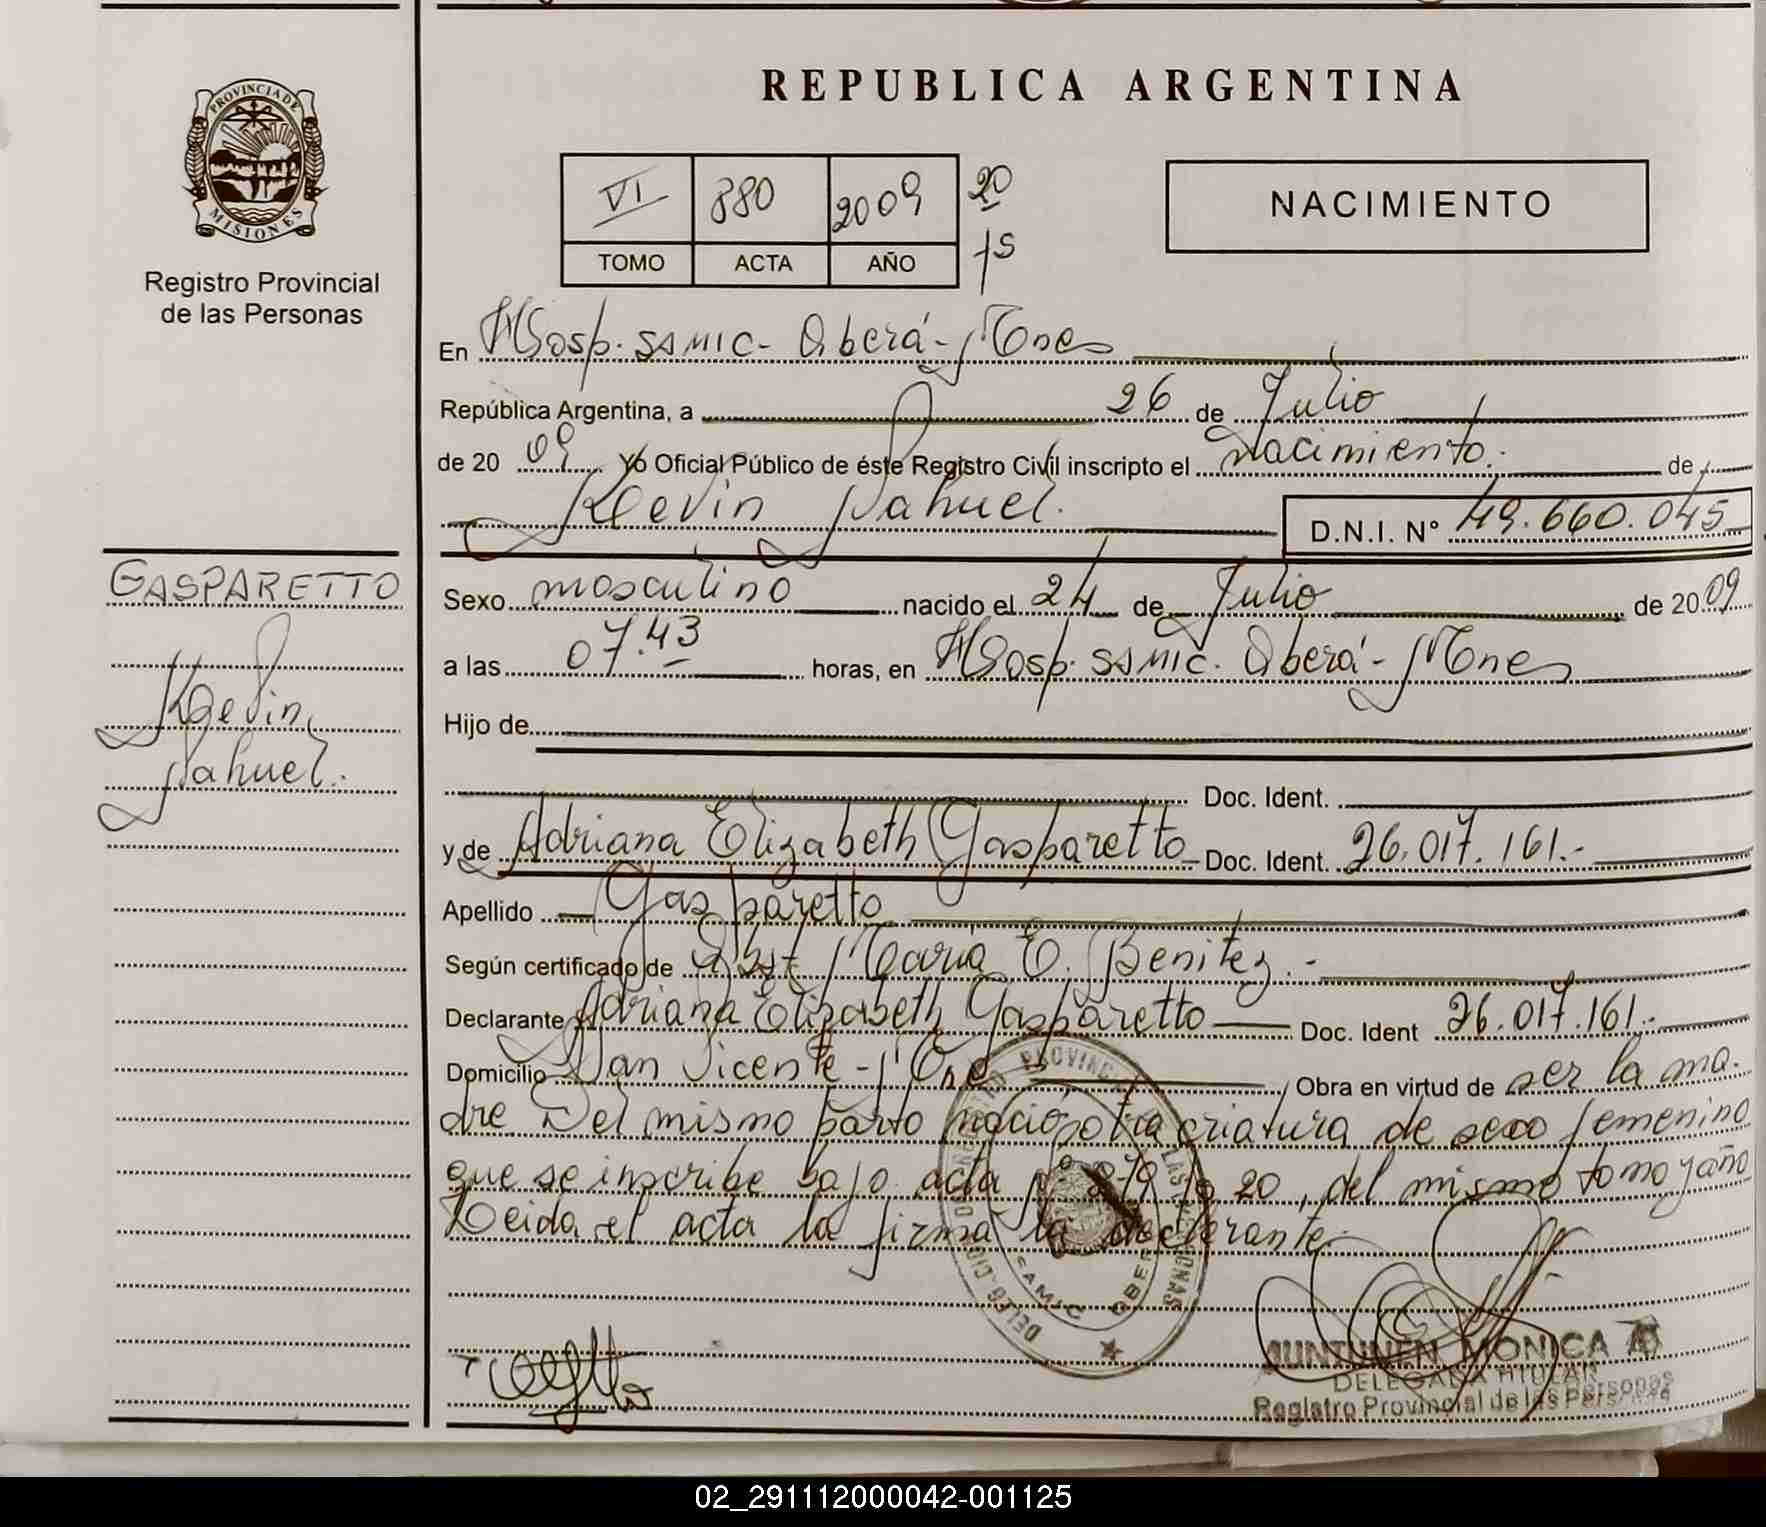 PROVINCIA DE
MISIONES
Registro Provincial
de las Personas
REPUBLICA ARGENTINA
VI 880 2009 20
TOMO ACTA AÑO
NACIMIENTO
En Hosp. SAMIC - Oberá - Mnes
República Argentina, a 26 de Julio
de 20 09 Yo Oficial Público de éste Registro Civil inscripto el Nacimiento. de
Kevin Nahuel. D.N.I. N° 49.660.045
GASPARETTO
Kevin
Nahuel.
Sexo masculino nacido el 24 de Julio de 20 09
a las 07.43 horas, en Hosp. SAMIC. Oberá - Mnes
Hijo de
Doc. Ident.
y de Adriana Elizabeth Gasparetto Doc. Ident. 26.017.161.-
Apellido Gasparetto
Según certificado de Obst María E. Benitez.-
Declarante Adriana Elizabeth Gasparetto Doc. Ident 26.017.161.-
Domicilio San Vicente - Mnes Obra en virtud de ser la ma-
dre Del mismo parto nació otra criatura de sexo femenino
que se inscribe bajo acta Nº 879 fº 20, del mismo tomo y año
Leida el acta la firma la declarante.
DELEG. SAMIC OBERA
MONICA
DELEGADA TITULAR
Registro Provincial de las Personas
02_291112000042-001125